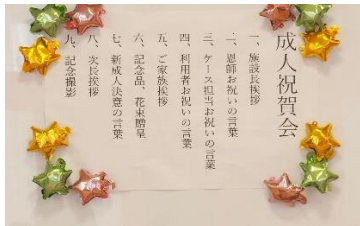 成人祝賀会
一、施設長挨拶
二、恩師お祝いの言葉
三、ケース担当お祝いの言葉
四、利用者お祝いの言葉
五、ご家族挨拶
六、記念品、花束贈呈
七、新成人決意の言葉
八、次長挨拶
九、記念撮影